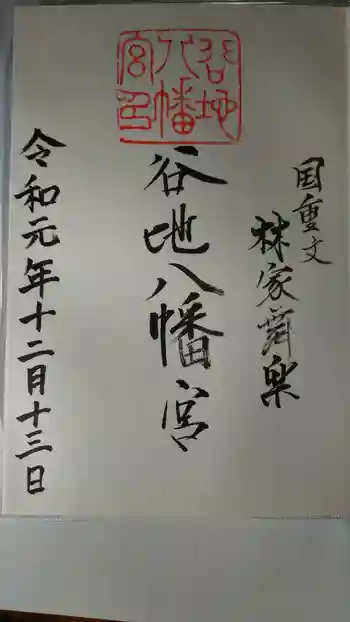 国重文
林家舞楽
谷地八幡宮
谷地
八幡
宮印
令和元年十二月十三日